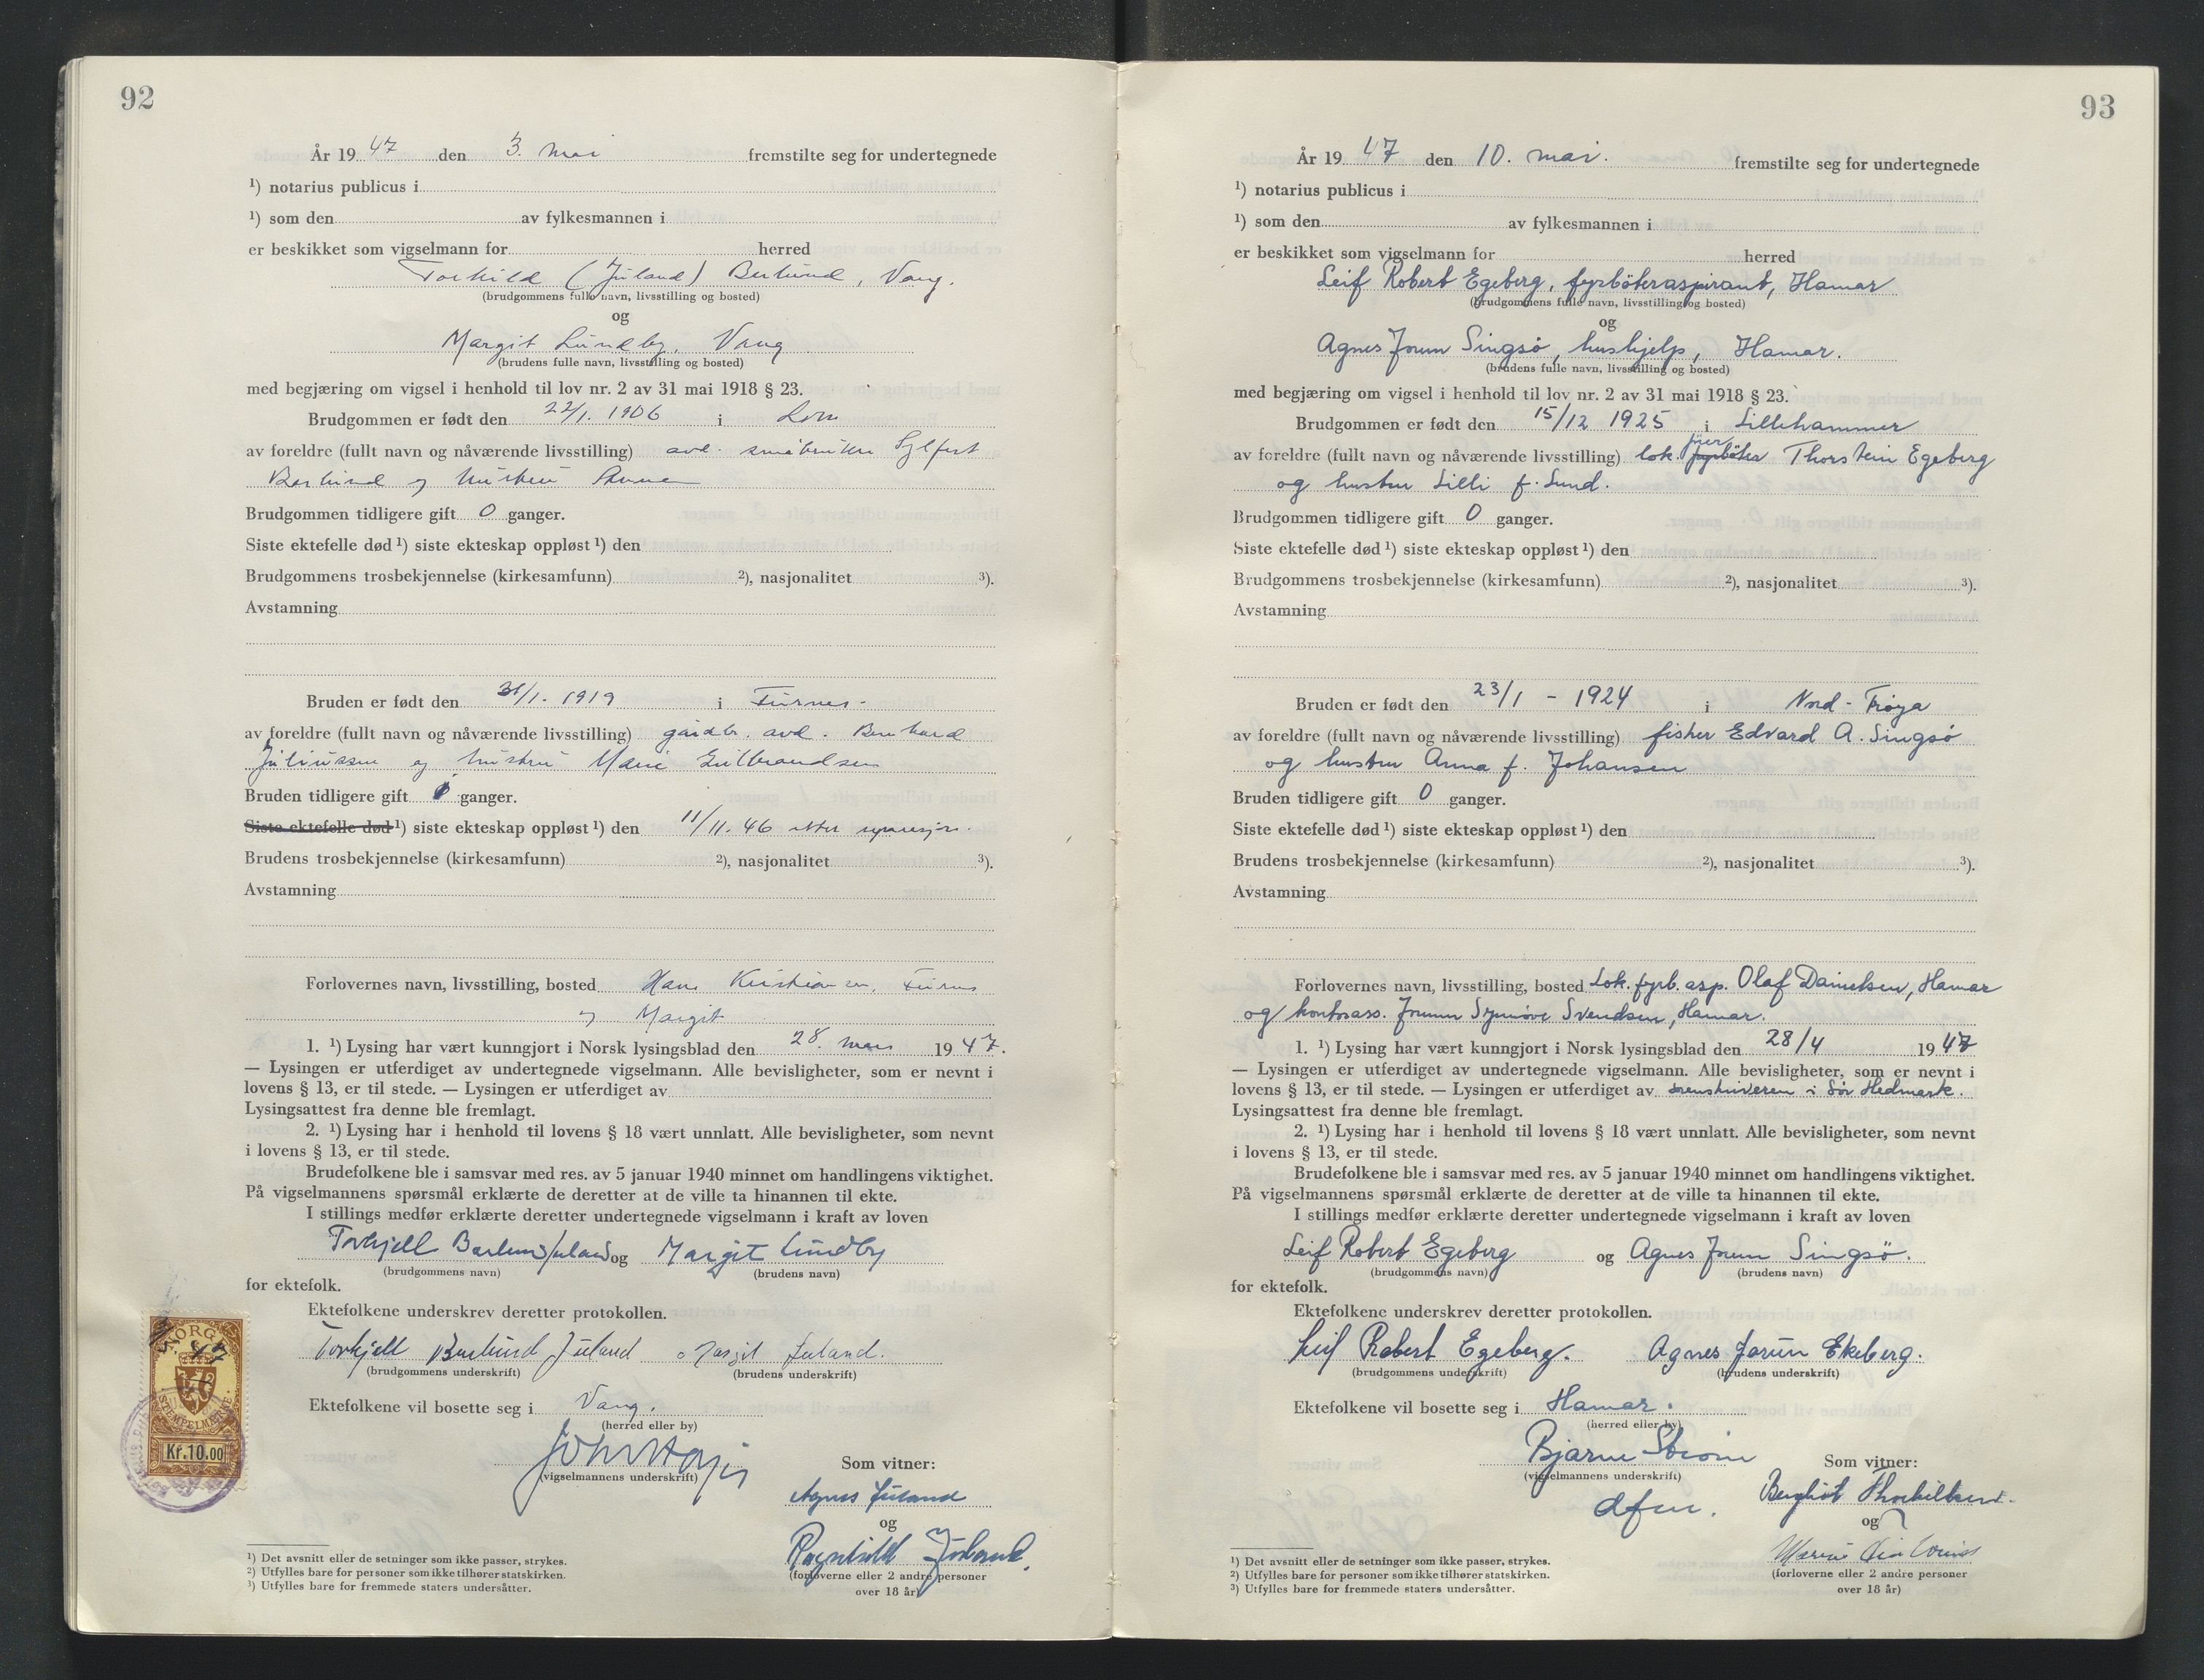 92
År 19 47 den 3. mai fremstilte seg for undertegnede
¹) notarius publicus i
¹) som den av fylkesmannen i
er beskikket som vigselmann for herred
(Juland) Berlund, Vang.
(brudgommens fulle navn, livsstilling og bosted)
og
Margit Lundby, Vang
(brudens fulle navn, livsstilling og bosted)
med begjæring om vigsel i henhold til lov nr. 2 av 31 mai 1918 § 23.
Brudgommen er født den 22/1. 1906 i Lom
av foreldre (fullt navn og nåværende livsstilling) avd. småbruker Sylfest
og hustru
Brudgommen tidligere gift 0 ganger.
Siste ektefelle død ¹) siste ekteskap oppløst ¹) den
Brudgommens trosbekjennelse (kirkesamfunn) ²), nasjonalitet ³).
Avstamning
Bruden er født den 31/1. 1919 i Furnes.
av foreldre (fullt navn og nåværende livsstilling) gårdbr. avd. Bernhard
Juliussen og hustru Marie Gulbrandsen
Bruden tidligere gift 1 ganger.
Siste ektefelle død ¹) siste ekteskap oppløst ¹) den 11/11. 46 etter separasjon.
Brudens trosbekjennelse (kirkesamfunn) ²), nasjonalitet ³).
Avstamning
Forlovernes navn, livsstilling, bosted Hans Kristiansen, Furnes
og Margit
1. ¹) Lysing har vært kunngjort i Norsk lysingsblad den 28. mars 19 47.
— Lysingen er utferdiget av undertegnede vigselmann. Alle bevisligheter, som er nevnt i
lovens § 13, er til stede. — Lysingen er utferdiget av
Lysingsattest fra denne ble fremlagt.
2. ¹) Lysing har i henhold til lovens § 18 vært unnlatt. Alle bevisligheter, som nevnt
i lovens § 13, er til stede.
Brudefolkene ble i samsvar med res. av 5 januar 1940 minnet om handlingens viktighet.
På vigselmannens spørsmål erklærte de deretter at de ville ta hinannen til ekte.
I stillings medfør erklærte deretter undertegnede vigselmann i kraft av loven
Torkjell og Margit Lundby
(brudgommens navn) (brudens navn)
for ektefolk.
Ektefolkene underskrev deretter protokollen.
Torkjell Berlund Juland Margit Juland.
(brudgommens underskrift) (brudens underskrift)
Ektefolkene vil bosette seg i Vang.
(herred eller by)
(vigselmannens underskrift)
Som vitner:
Agnes Juland
og
Ragnhild Juland.
(forloverne eller 2 andre personer
over 18 år)
NORGE
47
STEMPELMERKE
Kr.10.00
¹) Det avsnitt eller de setninger som ikke passer, strykes.
²) Utfylles bare for personer som ikke tilhører statskirken.
³) Utfylles bare for fremmede staters undersåtter.
93
År 19 47 den 10. mai. fremstilte seg for undertegnede
¹) notarius publicus i
¹) som den av fylkesmannen i
er beskikket som vigselmann for herred
Leif Robert Egeberg, fyrbøteraspirant, Hamar
(brudgommens fulle navn, livsstilling og bosted)
og
Agnes Jorun Singsø, hushjelp, Hamar.
(brudens fulle navn, livsstilling og bosted)
med begjæring om vigsel i henhold til lov nr. 2 av 31 mai 1918 § 23.
Brudgommen er født den 15/12 1925 i Lillehammer
av foreldre (fullt navn og nåværende livsstilling) lok. fyrbøter fører Thorstein Egeberg
og hustru Lilli f. Lund.
Brudgommen tidligere gift 0 ganger.
Siste ektefelle død ¹) siste ekteskap oppløst ¹) den
Brudgommens trosbekjennelse (kirkesamfunn) ²), nasjonalitet ³).
Avstamning
Bruden er født den 23/1 - 1924 i Nord-Frøya
av foreldre (fullt navn og nåværende livsstilling) fisker Edvard A. Singsø
og hustru Anna f. Johansen
Bruden tidligere gift 0 ganger.
Siste ektefelle død ¹) siste ekteskap oppløst ¹) den
Brudens trosbekjennelse (kirkesamfunn) ²), nasjonalitet ³).
Avstamning
Forlovernes navn, livsstilling, bosted Lok. fyrb. asp. Olaf Danielsen, Hamar
og kontorass. Jorunn Synnøve Svendsen, Hamar.
1. ¹) Lysing har vært kunngjort i Norsk lysingsblad den 28/4 19 47
— Lysingen er utferdiget av undertegnede vigselmann. Alle bevisligheter, som er nevnt i
lovens § 13, er til stede. — Lysingen er utferdiget av sorenskriveren i Sør Hedmark.
Lysingsattest fra denne ble fremlagt.
2. ¹) Lysing har i henhold til lovens § 18 vært unnlatt. Alle bevisligheter, som nevnt
i lovens § 13, er til stede.
Brudefolkene ble i samsvar med res. av 5 januar 1940 minnet om handlingens viktighet.
På vigselmannens spørsmål erklærte de deretter at de ville ta hinannen til ekte.
I stillings medfør erklærte deretter undertegnede vigselmann i kraft av loven
Leif Robert Egeberg og Agnes Jorun Singsø.
(brudgommens navn) (brudens navn)
for ektefolk.
Ektefolkene underskrev deretter protokollen.
Leif Robert Egeberg. Agnes Jorun Ekeberg.
(brudgommens underskrift) (brudens underskrift)
Ektefolkene vil bosette seg i Hamar.
(herred eller by)
Bjarne Strøm
(vigselmannens underskrift)
dfm.
Som vitner:
Bergliot
og
(forloverne eller 2 andre personer
over 18 år)
¹) Det avsnitt eller de setninger som ikke passer, strykes.
²) Utfylles bare for personer som ikke tilhører statskirken.
³) Utfylles bare for fremmede staters undersåtter.